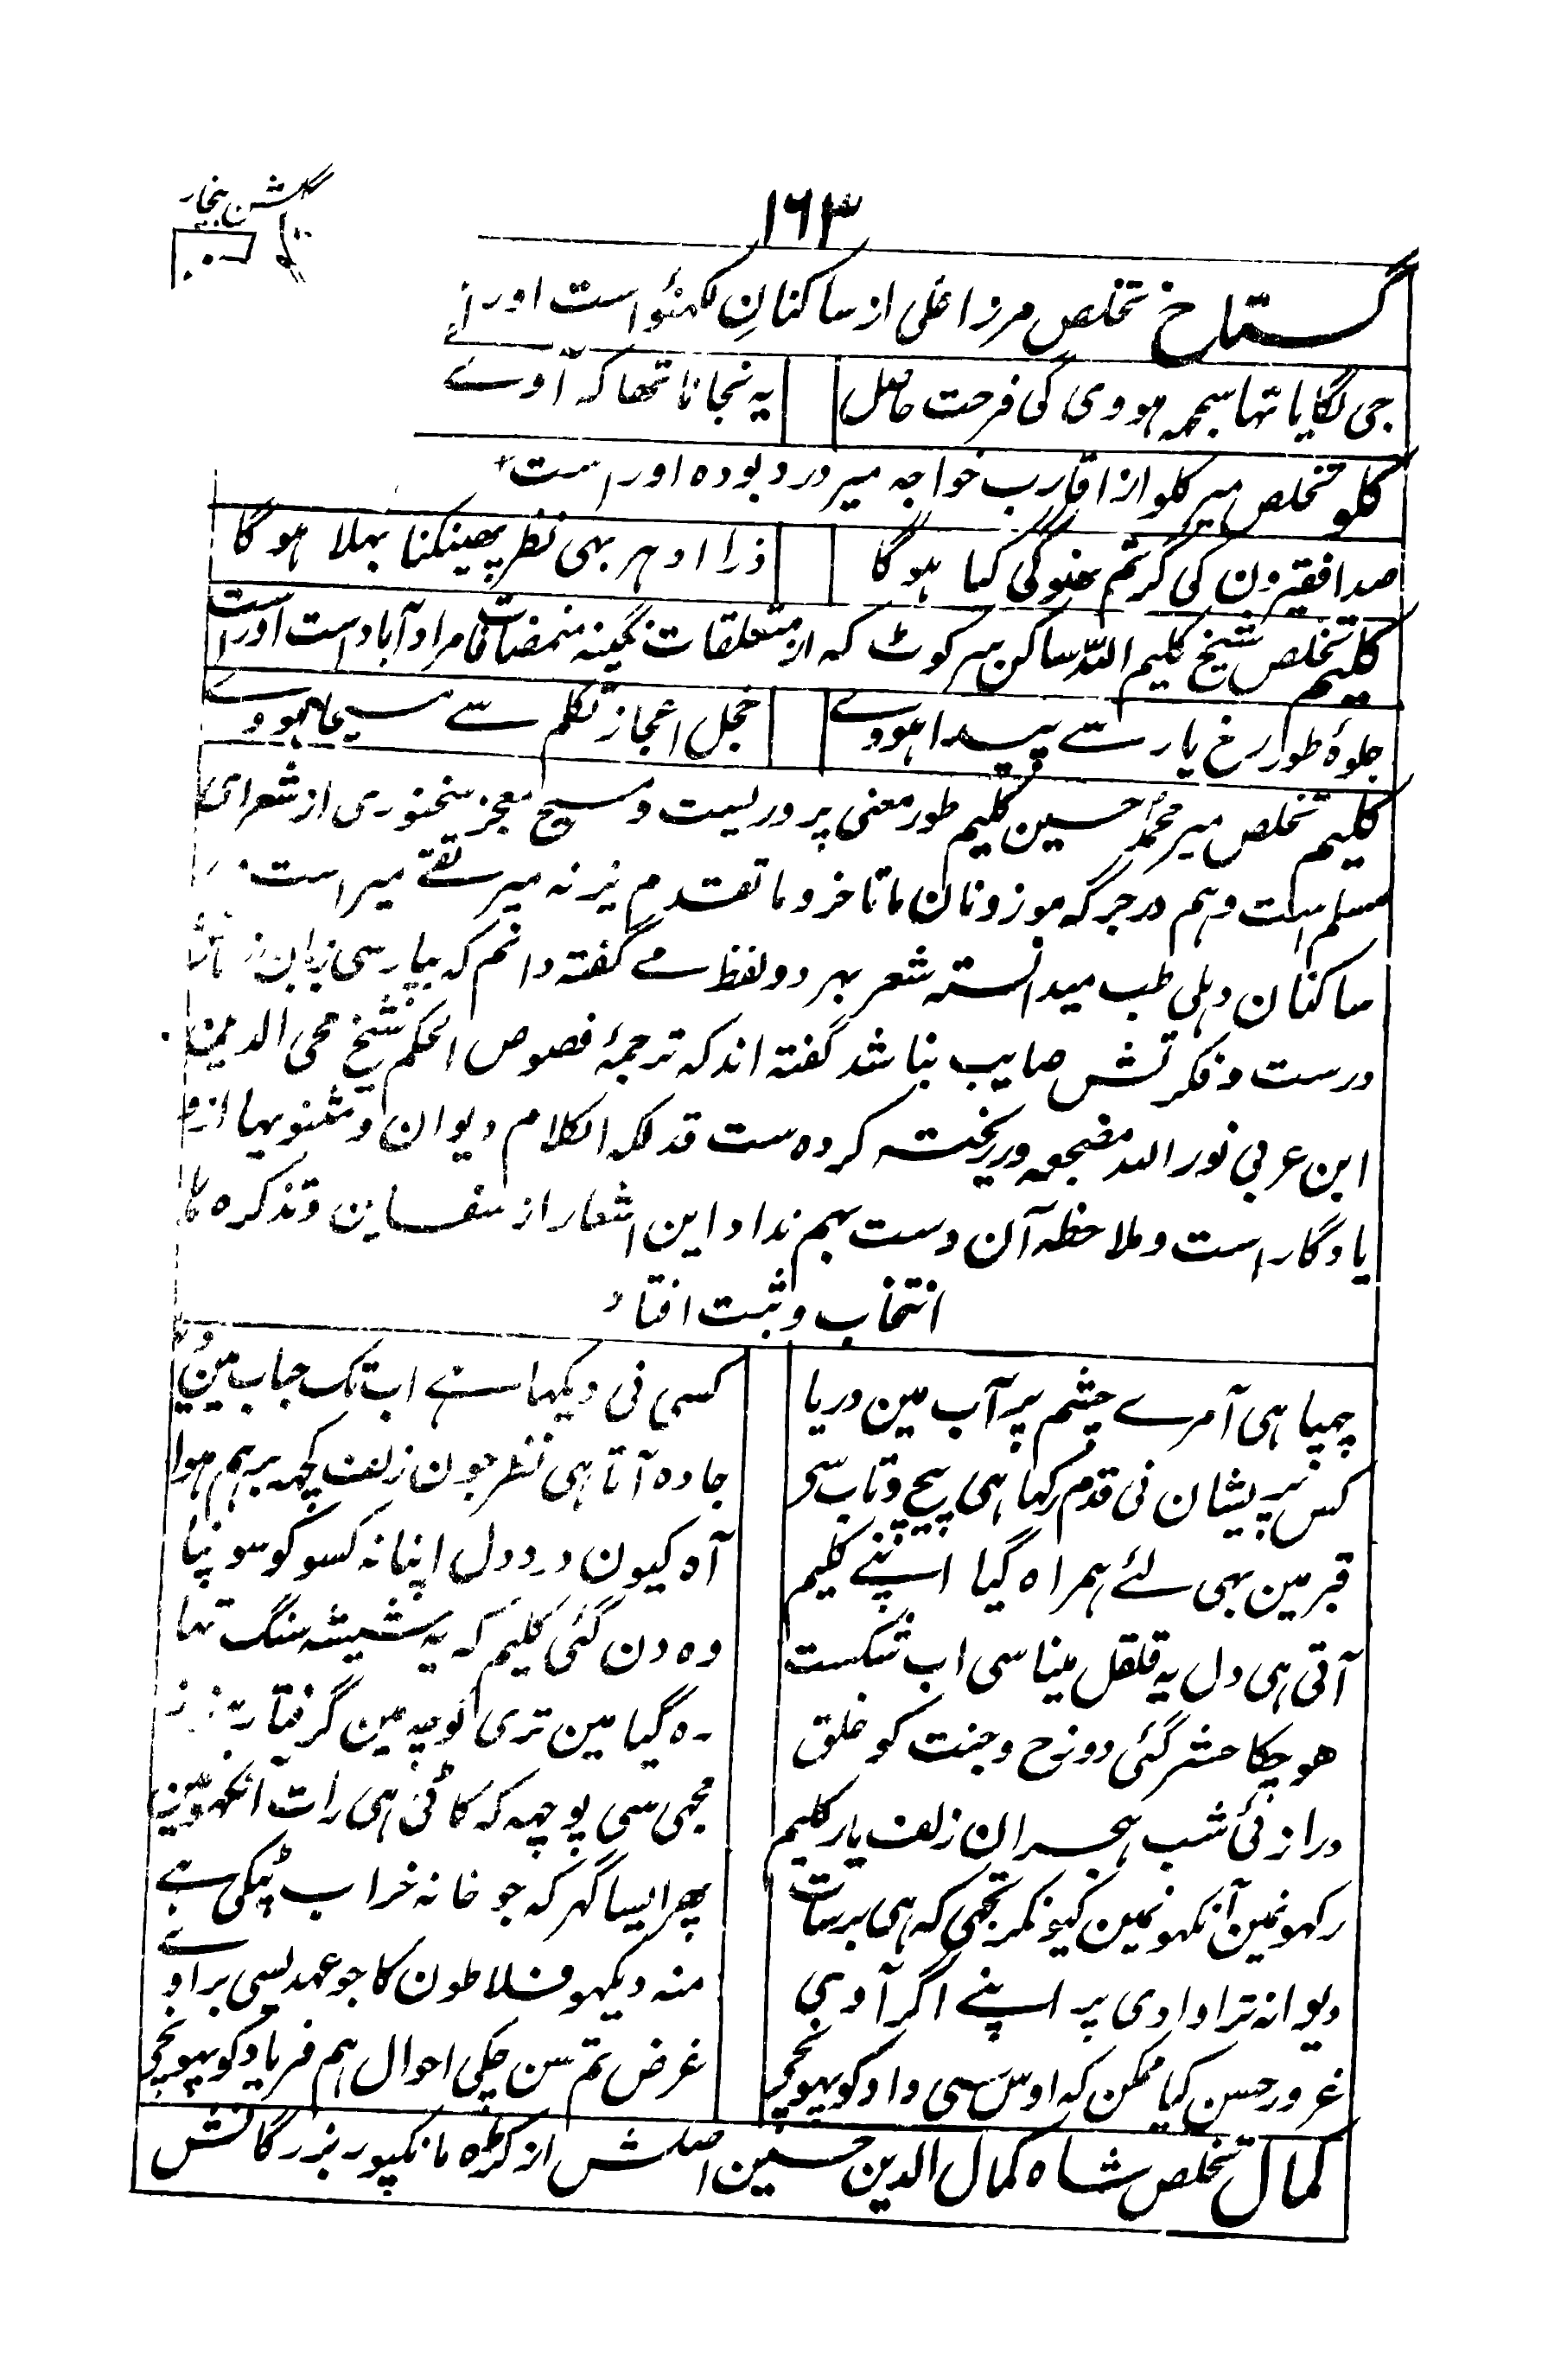 ۱۶۳
گلشن بیخار
گستاخ تخلص مرزا علی از ساکنانِ لکهنؤ است اور است
جی لگایا تها سمجهہ هووی گی فرحت حاصل یہ نجانا تھا کہ آوے
کلو تخلص میر کلو از اقارب خواجہ میر درد بوده اور است
صدا فقیرون کی گر تم سنوگی کیا ہوگا ذرا ادہر بہی نظر پھینکنا بہلا ہوگا
کلیم تخلص شیخ کلیم اللّٰہ ساکن سرکوٹ کہ از متعلقات نگینہ منمضافات مراد آباد است اور است
جلوۂ طور رخ یار سے پیدا ہووے خجل اعجاز تکلم سے مسیحا ہووے
کلیم تخلص میر محمد حسین کلیم طور معنی پروریست و مسیح معجز سخنوری از شعرای
مسلم است و ہم در جرگہ موزونان ما تاخر و ما تقدم نیز نہ میر تقے میر است
ساکنان دہلی طب میدانستہ شعر بہر دو لفظ مے گفتہ دانم کہ بپارسی زبان
درست و فکرتش صایب نباشد گفتہ اند کہ ترجمۂ فصوص الحکم شیخ محی الدین
ابن عربی نور اللہ مضجعہ در ریختہ کردہ ست قدلکہ الکلام دیوان و مثنویہا ازو
یادگار است و ملاحظہ آن دست بہم نداد این اشعار از سفاین و تذکرہ ہا
انتخاب و ثبت افتاد
چہپا ہی آ مرے چشم پر آب مین دریا کسی نی دیکہا ہے اب تک حباب مین
کس پریشان نی قدم رکہا ہی پیچ و تاب سی جادہ آتا ہی نظر جون زلف کچہہ برہم ہوا
قبر مین بہی لئے ہمراہ گیا اپنے کلیم آہ کیون درد دل اپنا نہ کسو کو سونپا
آتی ہی دل پہ قلقل مینا سی اب شکست وہ دن گئی کلیم کہ یہ شیشہ سنگ تہا
ہو چکا حشر گئی دوزخ و جنت کو خلق رہ گیا مین تری کوچہ مین گرفتار
درازئی شب ہجران زلف یار کلیم مجہی سی پوچہہ کہ کاٹی ہی رات آنکہونمین
رکہونمین آنکہونمین کیونکر تجہی کہ ہی برسات پھر ایسا گہر کہ جو خانہ خراب ٹپکی ہے
دیوانہ ترا وادی پر اپنے اگر آوی منہ دیکہو فلاطون کا جو عہدیسی بر آوے
غرور حسن کیا ممکن کہ اوس سی داد کو پہونچی غرض تم سن چکی احوال ہم فریاد کو پہونچی
کمال تخلص شاہ کمال الدین حسین اصلش از کڑہ مانکپور بزرگانش